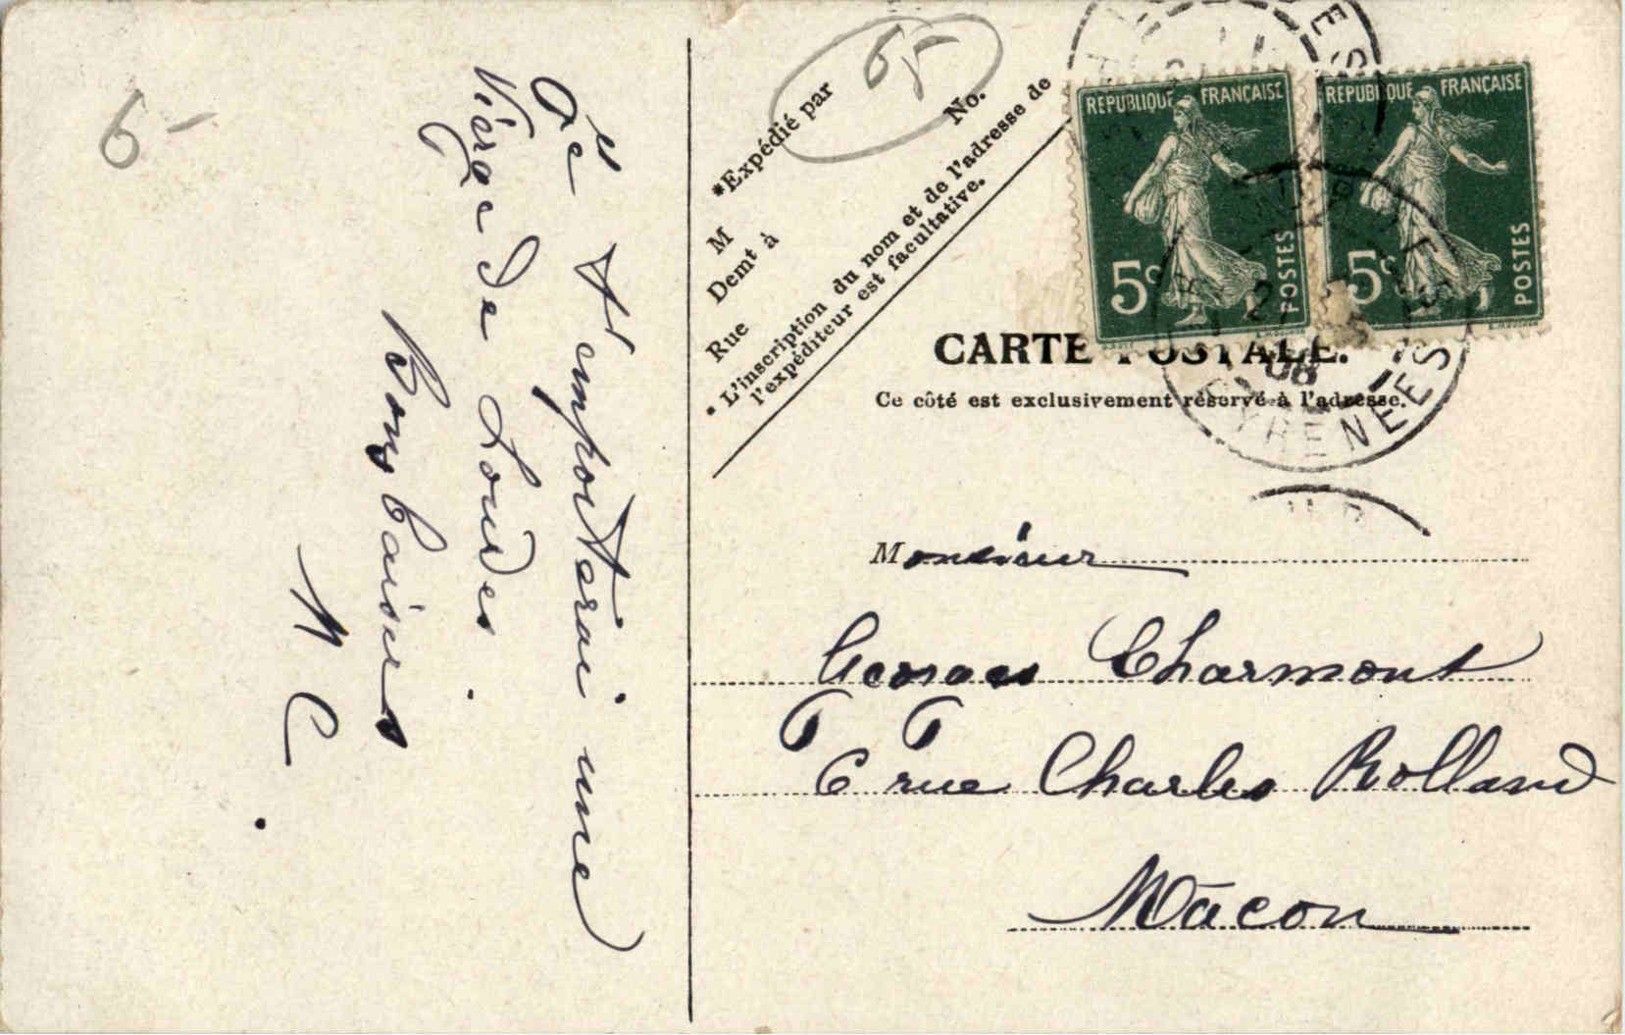 6-
65-
*Expédié par
No.
M
Demt à
Rue
* L'inscription du nom et de l'adresse de
l'expéditeur est facultative.
REPUBLIQUE FRANÇAISE
5c
POSTES
REPUBLIQUE FRANÇAISE
5c
POSTES
CARTE POSTALE.
Ce côté est exclusivement réservé à l'adresse.
PYRENEES
08
t'emporterai une
Vierge de Lourdes
Bons baisers
M C.
Monsieur
Georges Charmont
6 rue Charles Rolland
Mâcon